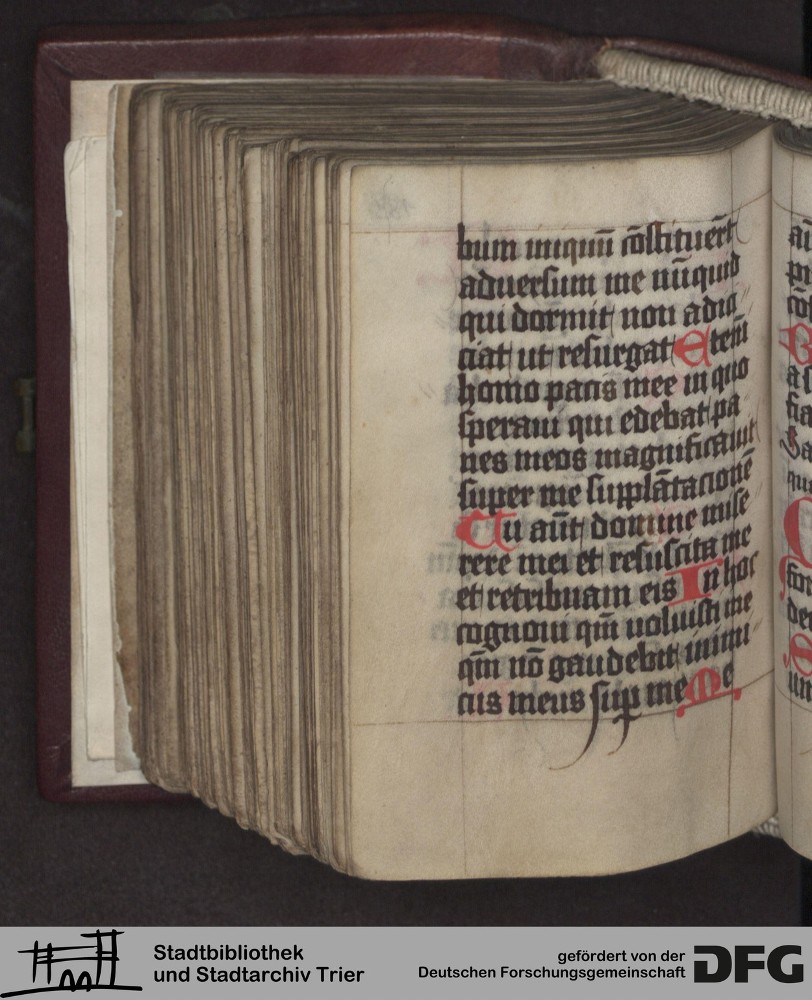 bum iniquū ꝯ̄stituer̄t
aduersum me nūquid
qui dormit non adiᷓ
ciat ut resurgat Etenī
homo pacis mee in quo
speraui qui edebat pa
nes meos magnificauit
super me supplātacionē
Tu aūt domine mise
rere mei et resuscita me
et retribuam eis In hoc
cognoui qm̄ uoluisti me
qm̄ nō gaudebit inimi
cus meus suꝑ me Me
Stadtbibliothek
und Stadtarchiv Trier
gefördert von der
Deutschen Forschungsgemeinschaft
DFG